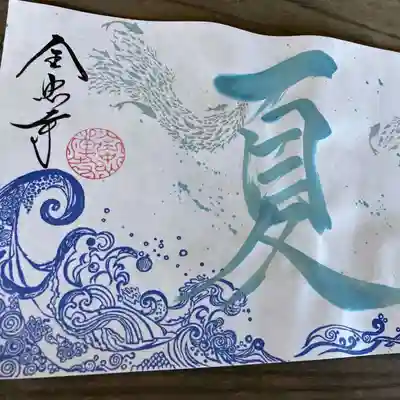 夏
全忠寺